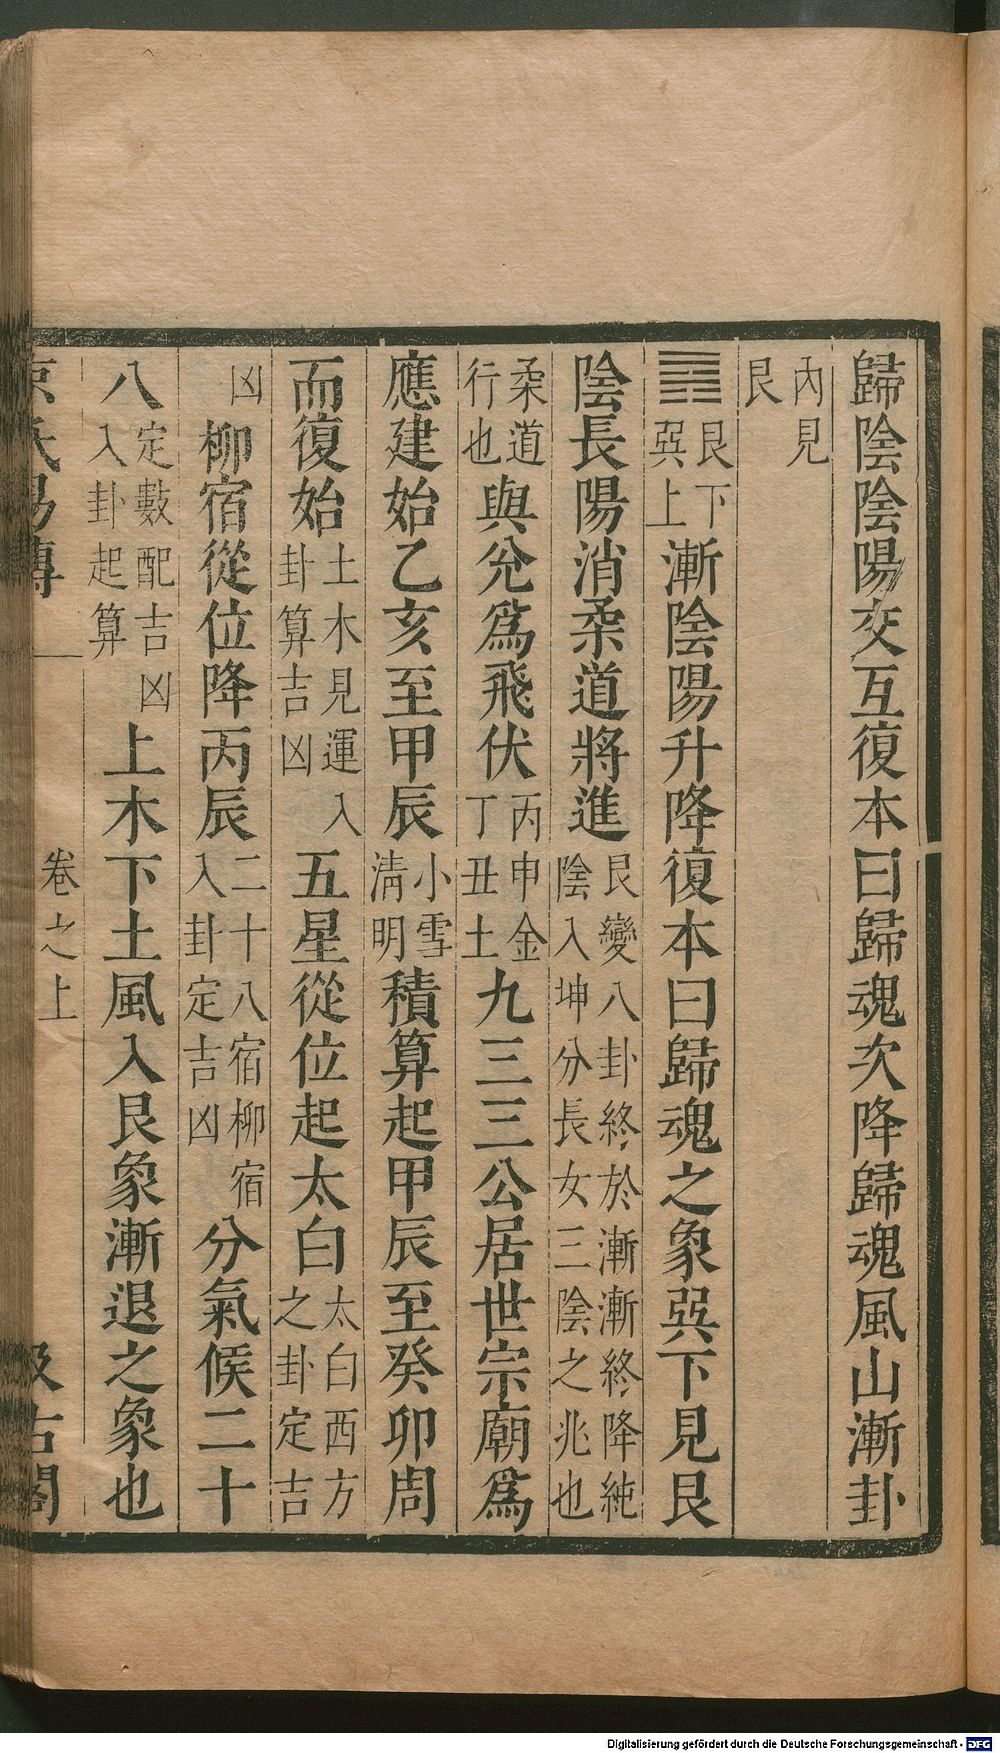 歸陰陰陽交互復本曰歸魂次降歸魂風山漸卦
內見
艮
䷴艮下
巽上漸陰陽升降復本曰歸魂之象巽下見艮
陰長陽消柔道將進艮變八卦終於漸漸終降純
陰入坤分長女三陰之兆也
柔道
行也與兌爲飛伏丙申金
丁丑土九三三公居世宗廟爲
應建始乙亥至甲辰小雪
淸明積算起甲辰至癸卯周
而復始土木見運入
卦算吉凶五星從位起太白太白西方
之卦定吉
凶柳宿從位降丙辰二十八宿柳宿
入卦定吉凶分氣候二十
八定數配吉凶
入卦起算上木下土風入艮象漸退之象也
京氏易傳
卷之上
汲古閣
Digitalisierung gefördert durch die Deutsche Forschungsgemeinschaft - DFG